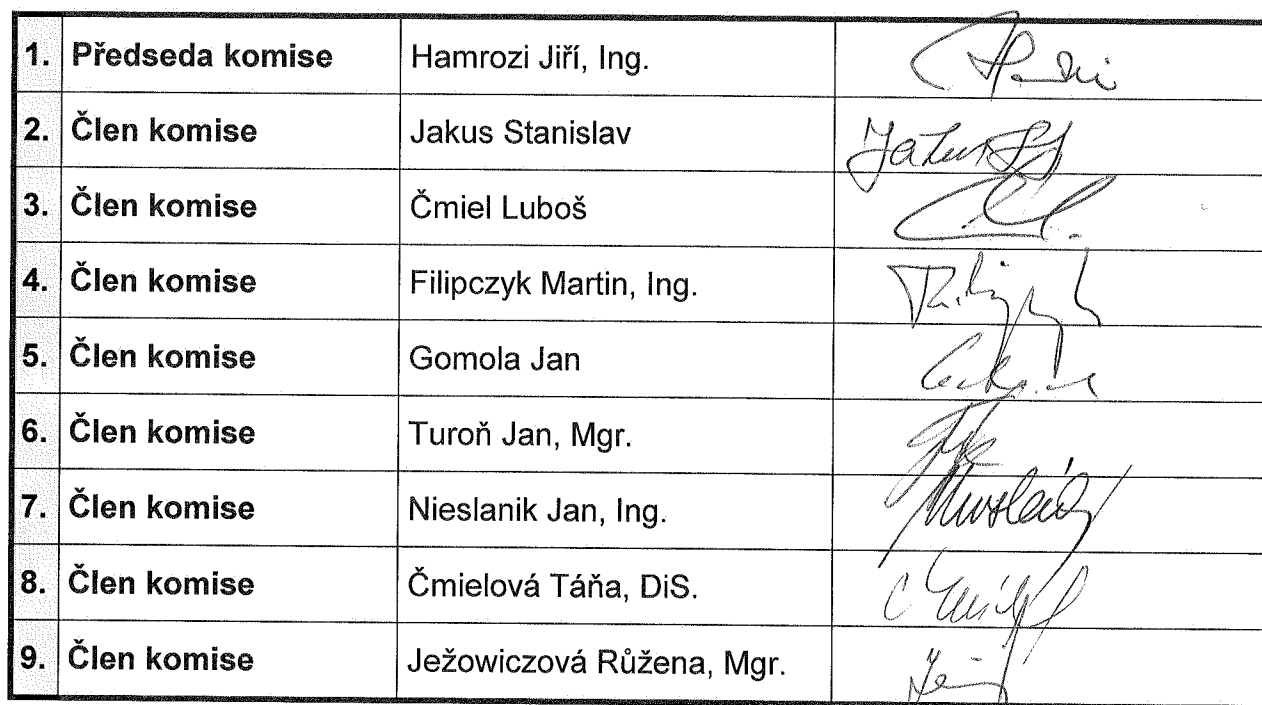 1. Předseda komise Hamrozi Jiří, Ing.
2. Člen komise Jakus Stanislav
3. Člen komise Čmiel Luboš
4. Člen komise Filipczyk Martin, Ing.
5. Člen komise Gomola Jan
6. Člen komise Turoň Jan, Mgr.
7. Člen komise Nieslanik Jan, Ing.
8. Člen komise Čmielová Táňa, DiS.
9. Člen komise Ježowiczová Růžena, Mgr.